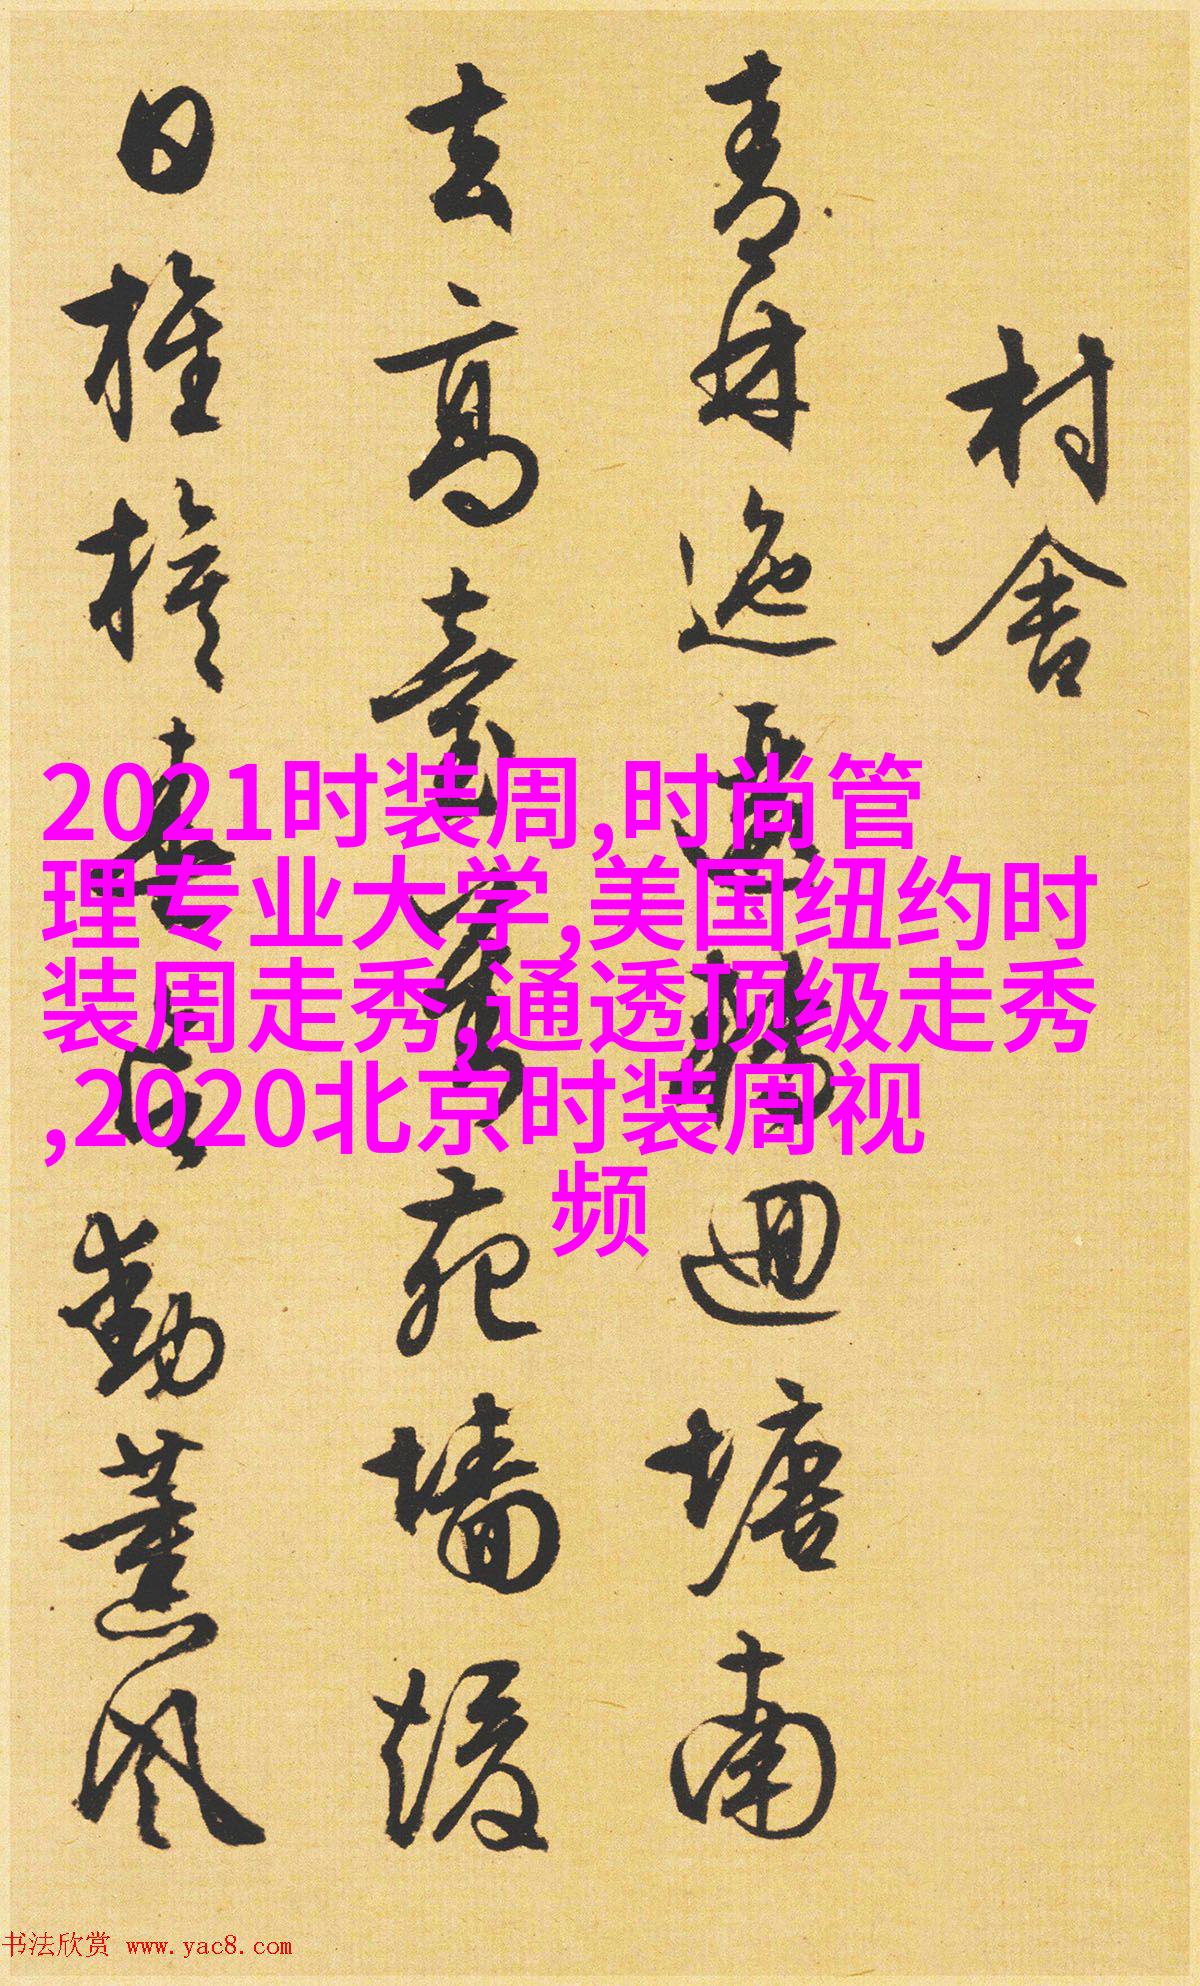 村舍
青林迤迴塘南
去高臺苑墙煖
日推移動薰风
2021时装周,时尚管
理专业大学,美国纽约时
装周走秀,通透顶级走秀
,2020北京时装周视
频
书法欣赏 www.yac8.com